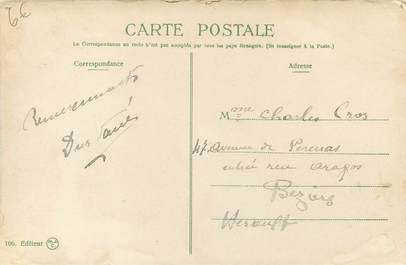 6€
CARTE POSTALE
La Correspondance au recto n'est pas acceptée par tous les pays étrangers. (Se renseigner à la Poste.)
Correspondance
Adresse
Remerciements
Mme Charles Cros
47 Avenue de
entrée rue
Beziers
Herault
106. Editeur